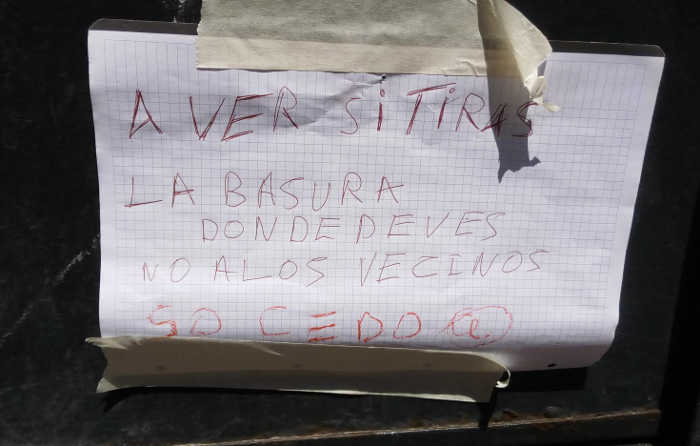 A VER Si TiRAS
LA BASURA
DONDE DEVES
NO A LOS VECINOS
SO CEDO @